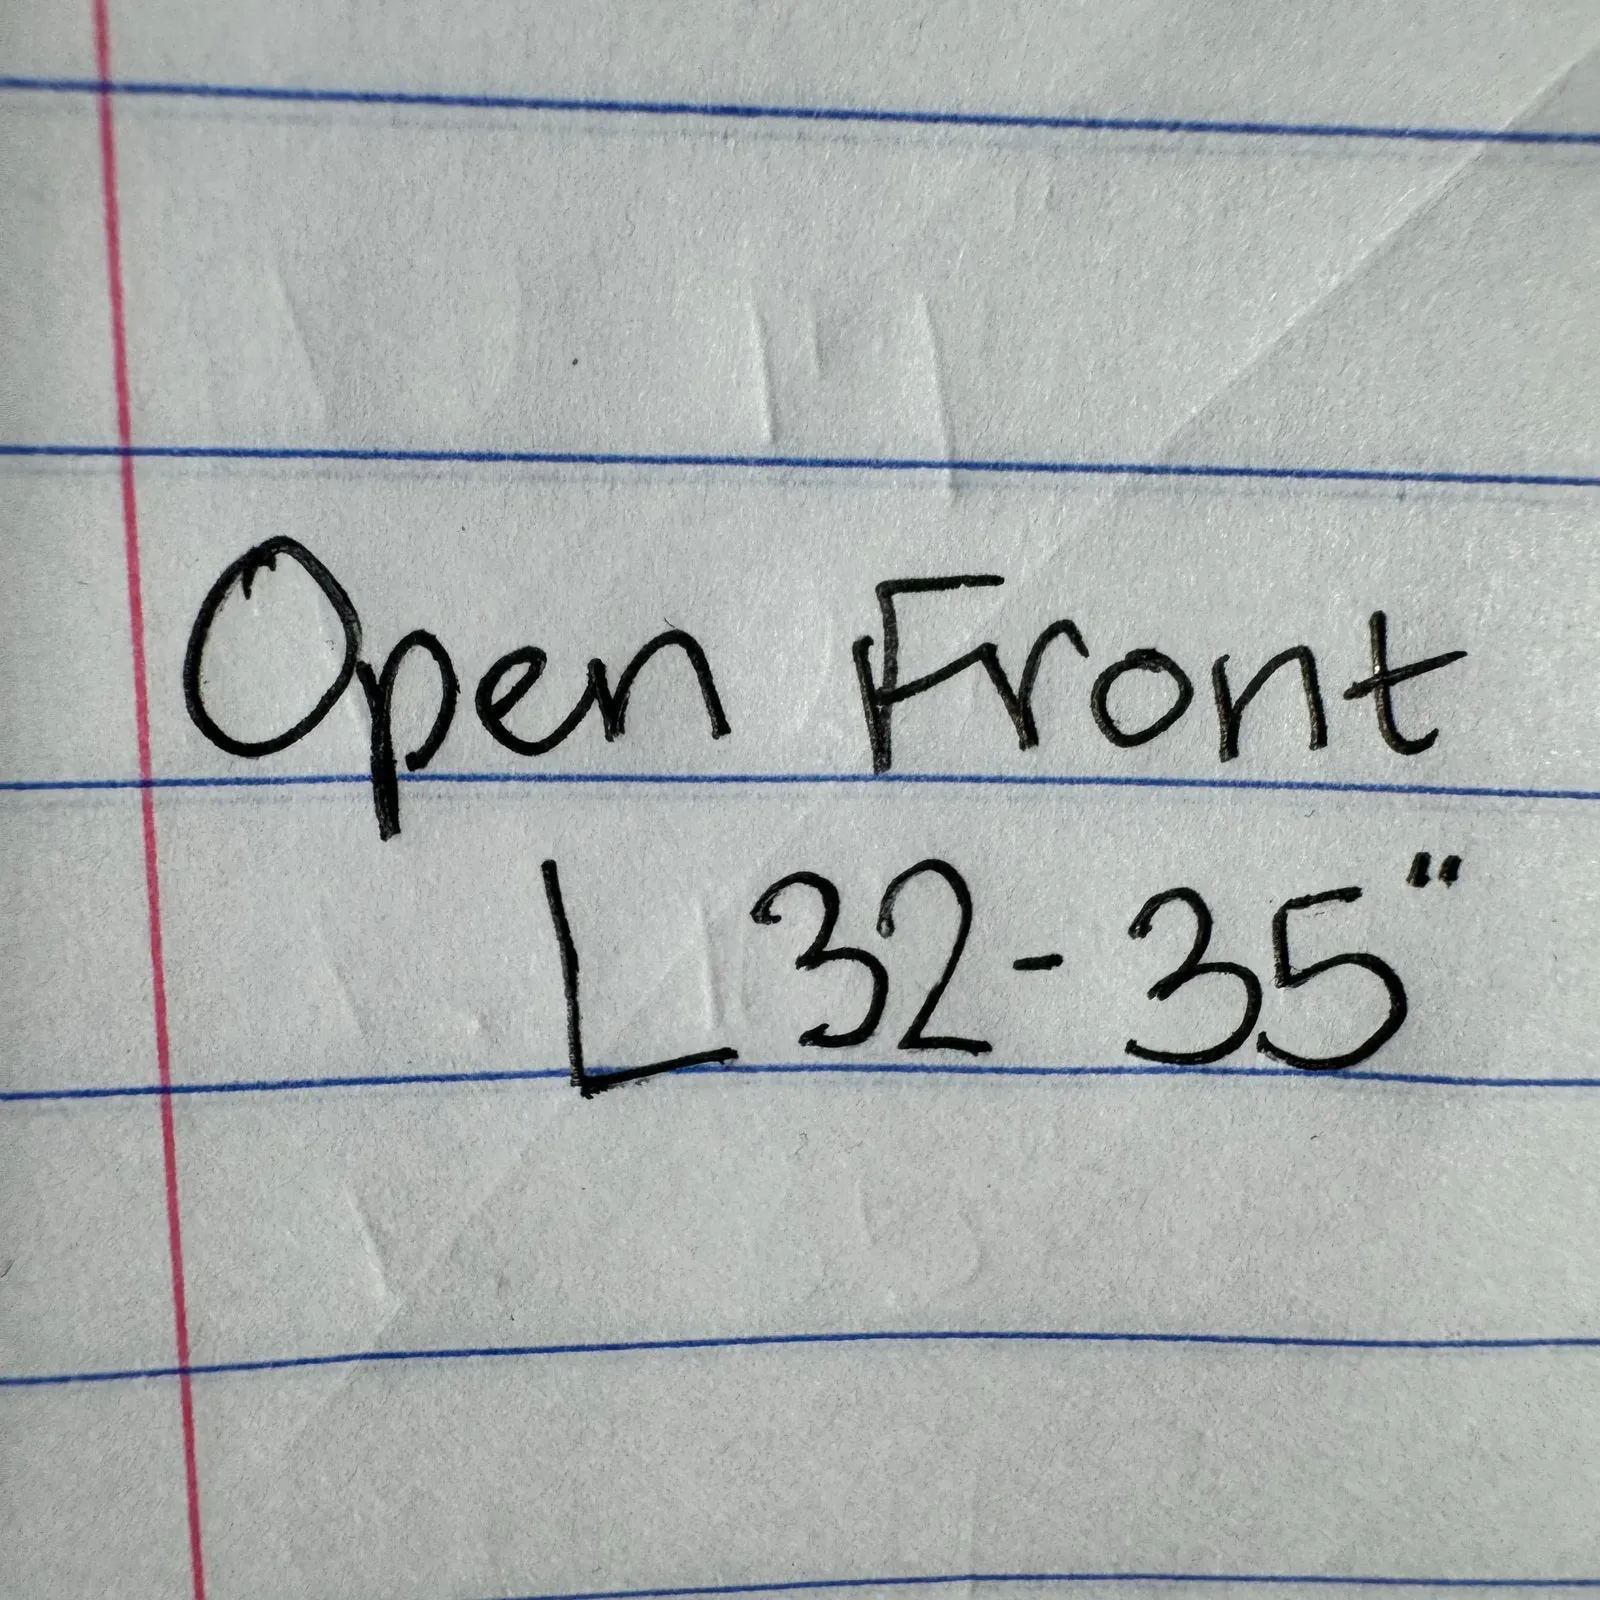 Open Front
L 32-35"